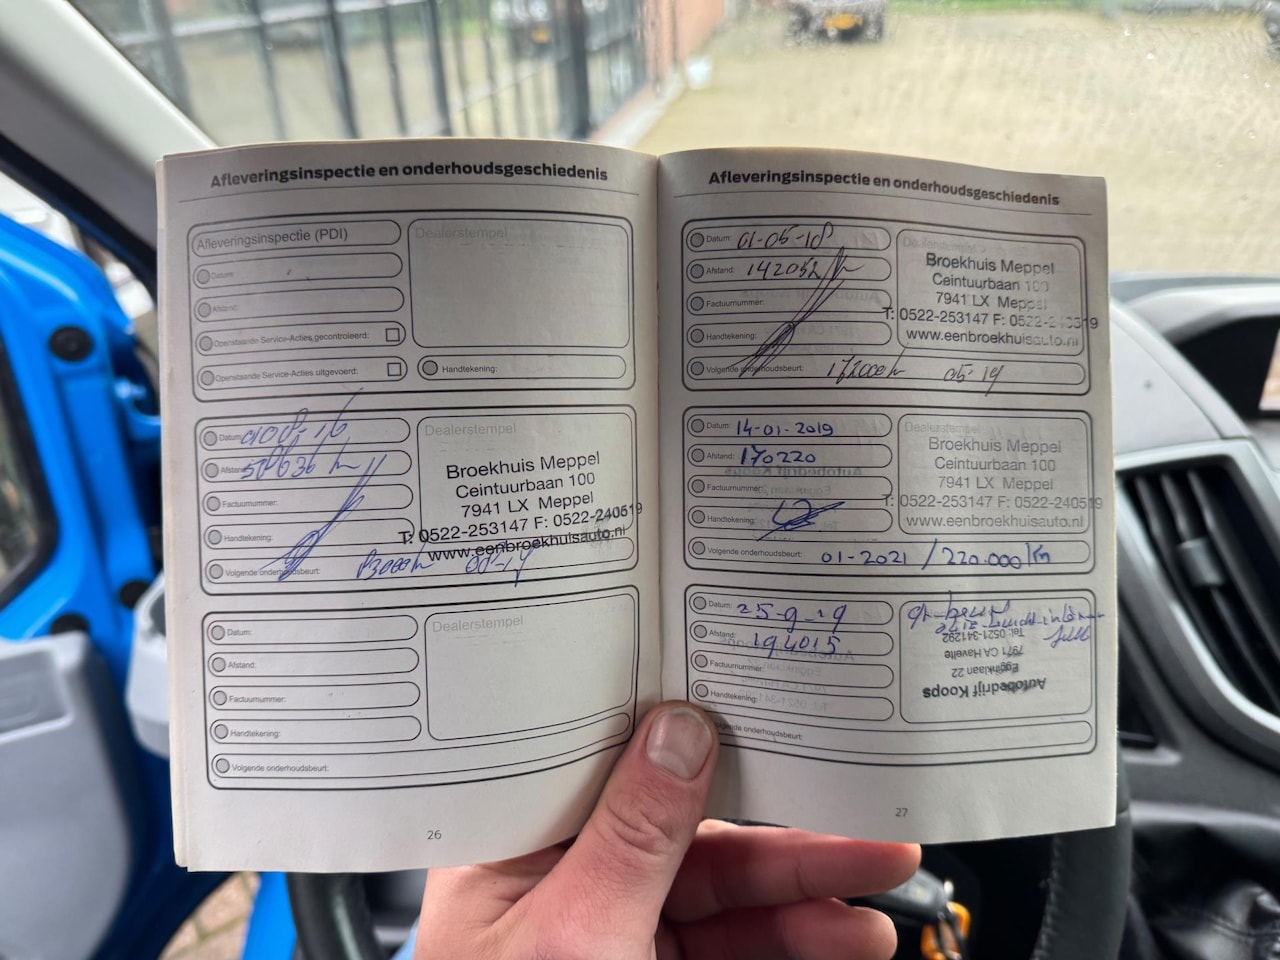 Afleveringsinspectie en onderhoudsgeschiedenis
Afleveringsinspectie (PDI)
Datum:
Afstand:
Openstaande Service-Acties gecontroleerd:
Openstaande Service-Acties uitgevoerd:
Dealerstempel
Handtekening:
Datum:
Afstand:
Factuurnummer:
Handtekening:
Volgende onderhoudsbeurt:
Dealerstempel
Broekhuis Meppel
Ceintuurbaan 100
7941 LX Meppel
T: 0522-253147 F: 0522-240519
www.eenbroekhuisauto.nl
Datum:
Afstand:
Factuurnummer:
Handtekening:
Volgende onderhoudsbeurt:
Dealerstempel
26
Afleveringsinspectie en onderhoudsgeschiedenis
Datum: 01-05-18
Afstand: 142052 km
Factuurnummer:
Handtekening:
Volgende onderhoudsbeurt: 05-19
Dealerstempel
Broekhuis Meppel
Ceintuurbaan 100
7941 LX Meppel
T: 0522-253147 F:
www.eenbroekhuisauto.nl
Datum: 14-01-2019
Afstand: 170220
Factuurnummer:
Handtekening:
Volgende onderhoudsbeurt: 01-2021 / 220.000 km
Dealerstempel
Broekhuis Meppel
Ceintuurbaan 100
7941 LX Meppel
T: 0522-253147 F: 0522-240519
www.eenbroekhuisauto.nl
Datum: 25-9-19
Afstand: 194015
Factuurnummer:
Handtekening:
Volgende onderhoudsbeurt:
Autobedrijf Koops
Egginklaan 22
7971 CA Havelte
Tel: 0521-341292
27